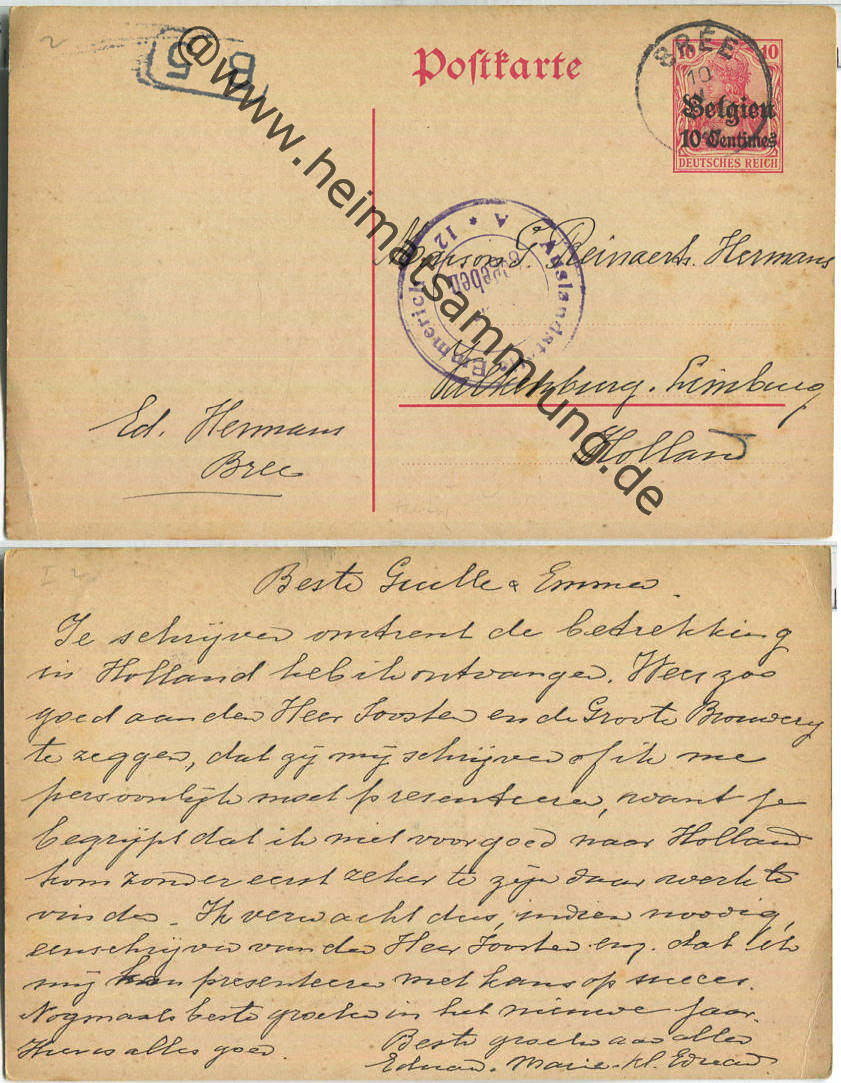 B 5
Postkarte
BREE
10
10 10
Belgien
10 Centimes
DEUTSCHES REICH
@www.heimatsammlung.de
Auslandst Emmerich
A * 12
Maison G. Reinaerts. Hermans
Valkenburg. Limburg
Holland
Ed. Hermans
Bree
Beste Guille & Emma.
Je schrijven omtrent de betrekking
in Holland heb ik ontvangen. Wees zoo
goed aan den Heer Joosten en de Groote Brouwery
te zeggen, dat zij mij schrijven of ik me
persoonlijk moet presenteeren, want je
begrijpt dat ik niet voorgoed naar Holland
kom zonder eerst zeker te zijn daar werk te
vinden. Ik verwacht dus, indien noodig,
een schrijven van den Heer Joosten enz. dat ik
mij kan presenteeren met kans op succes.
Nogmaals beste groeten in het nieuwe jaar.
Hier is alles goed. Beste groeten aan allen
Eduard. Marie. kl. Eduard